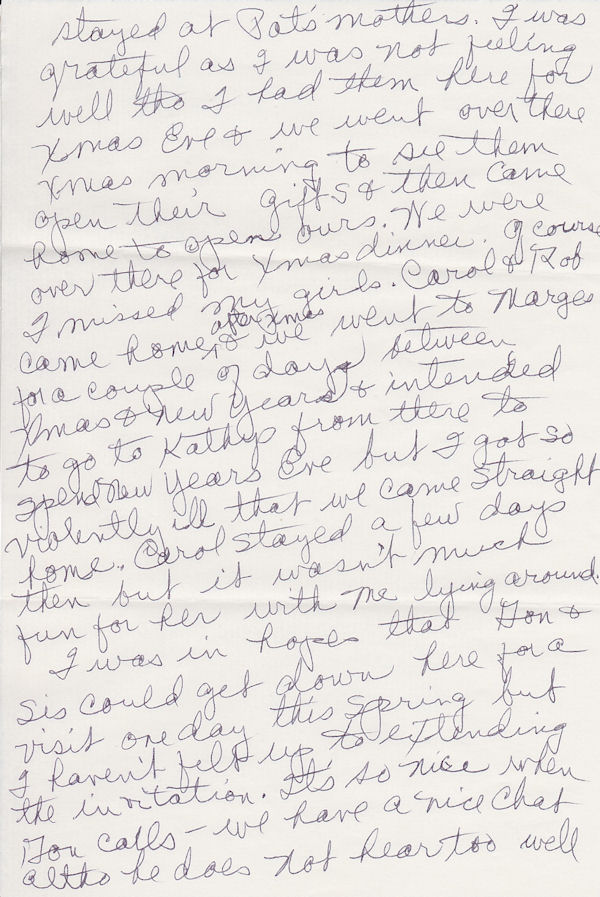 stayed at Pat's mothers. I was
grateful as I was not feeling
well tho I had them here for
Xmas Eve & we went over there
Xmas morning to see them
open their gifts & then came
home to open ours. We were
over there for Xmas dinner. Of course
I missed my girls. Carol & Rob
came home after Xmas & we went to Marges
for a couple of days between
Xmas & New Years & intended
to go to Kathys from there to
spend New Years Eve but I got so
violently ill that we came straight
home. Carol stayed a few days
then but it wasn't much
fun for her with me lying around.
I was in hopes that &
Sis could get down here for a
visit one day this Spring but
I haven't felt up to extending
the invitation. It's so nice when
calls - we have a nice chat
altho he does not hear too well